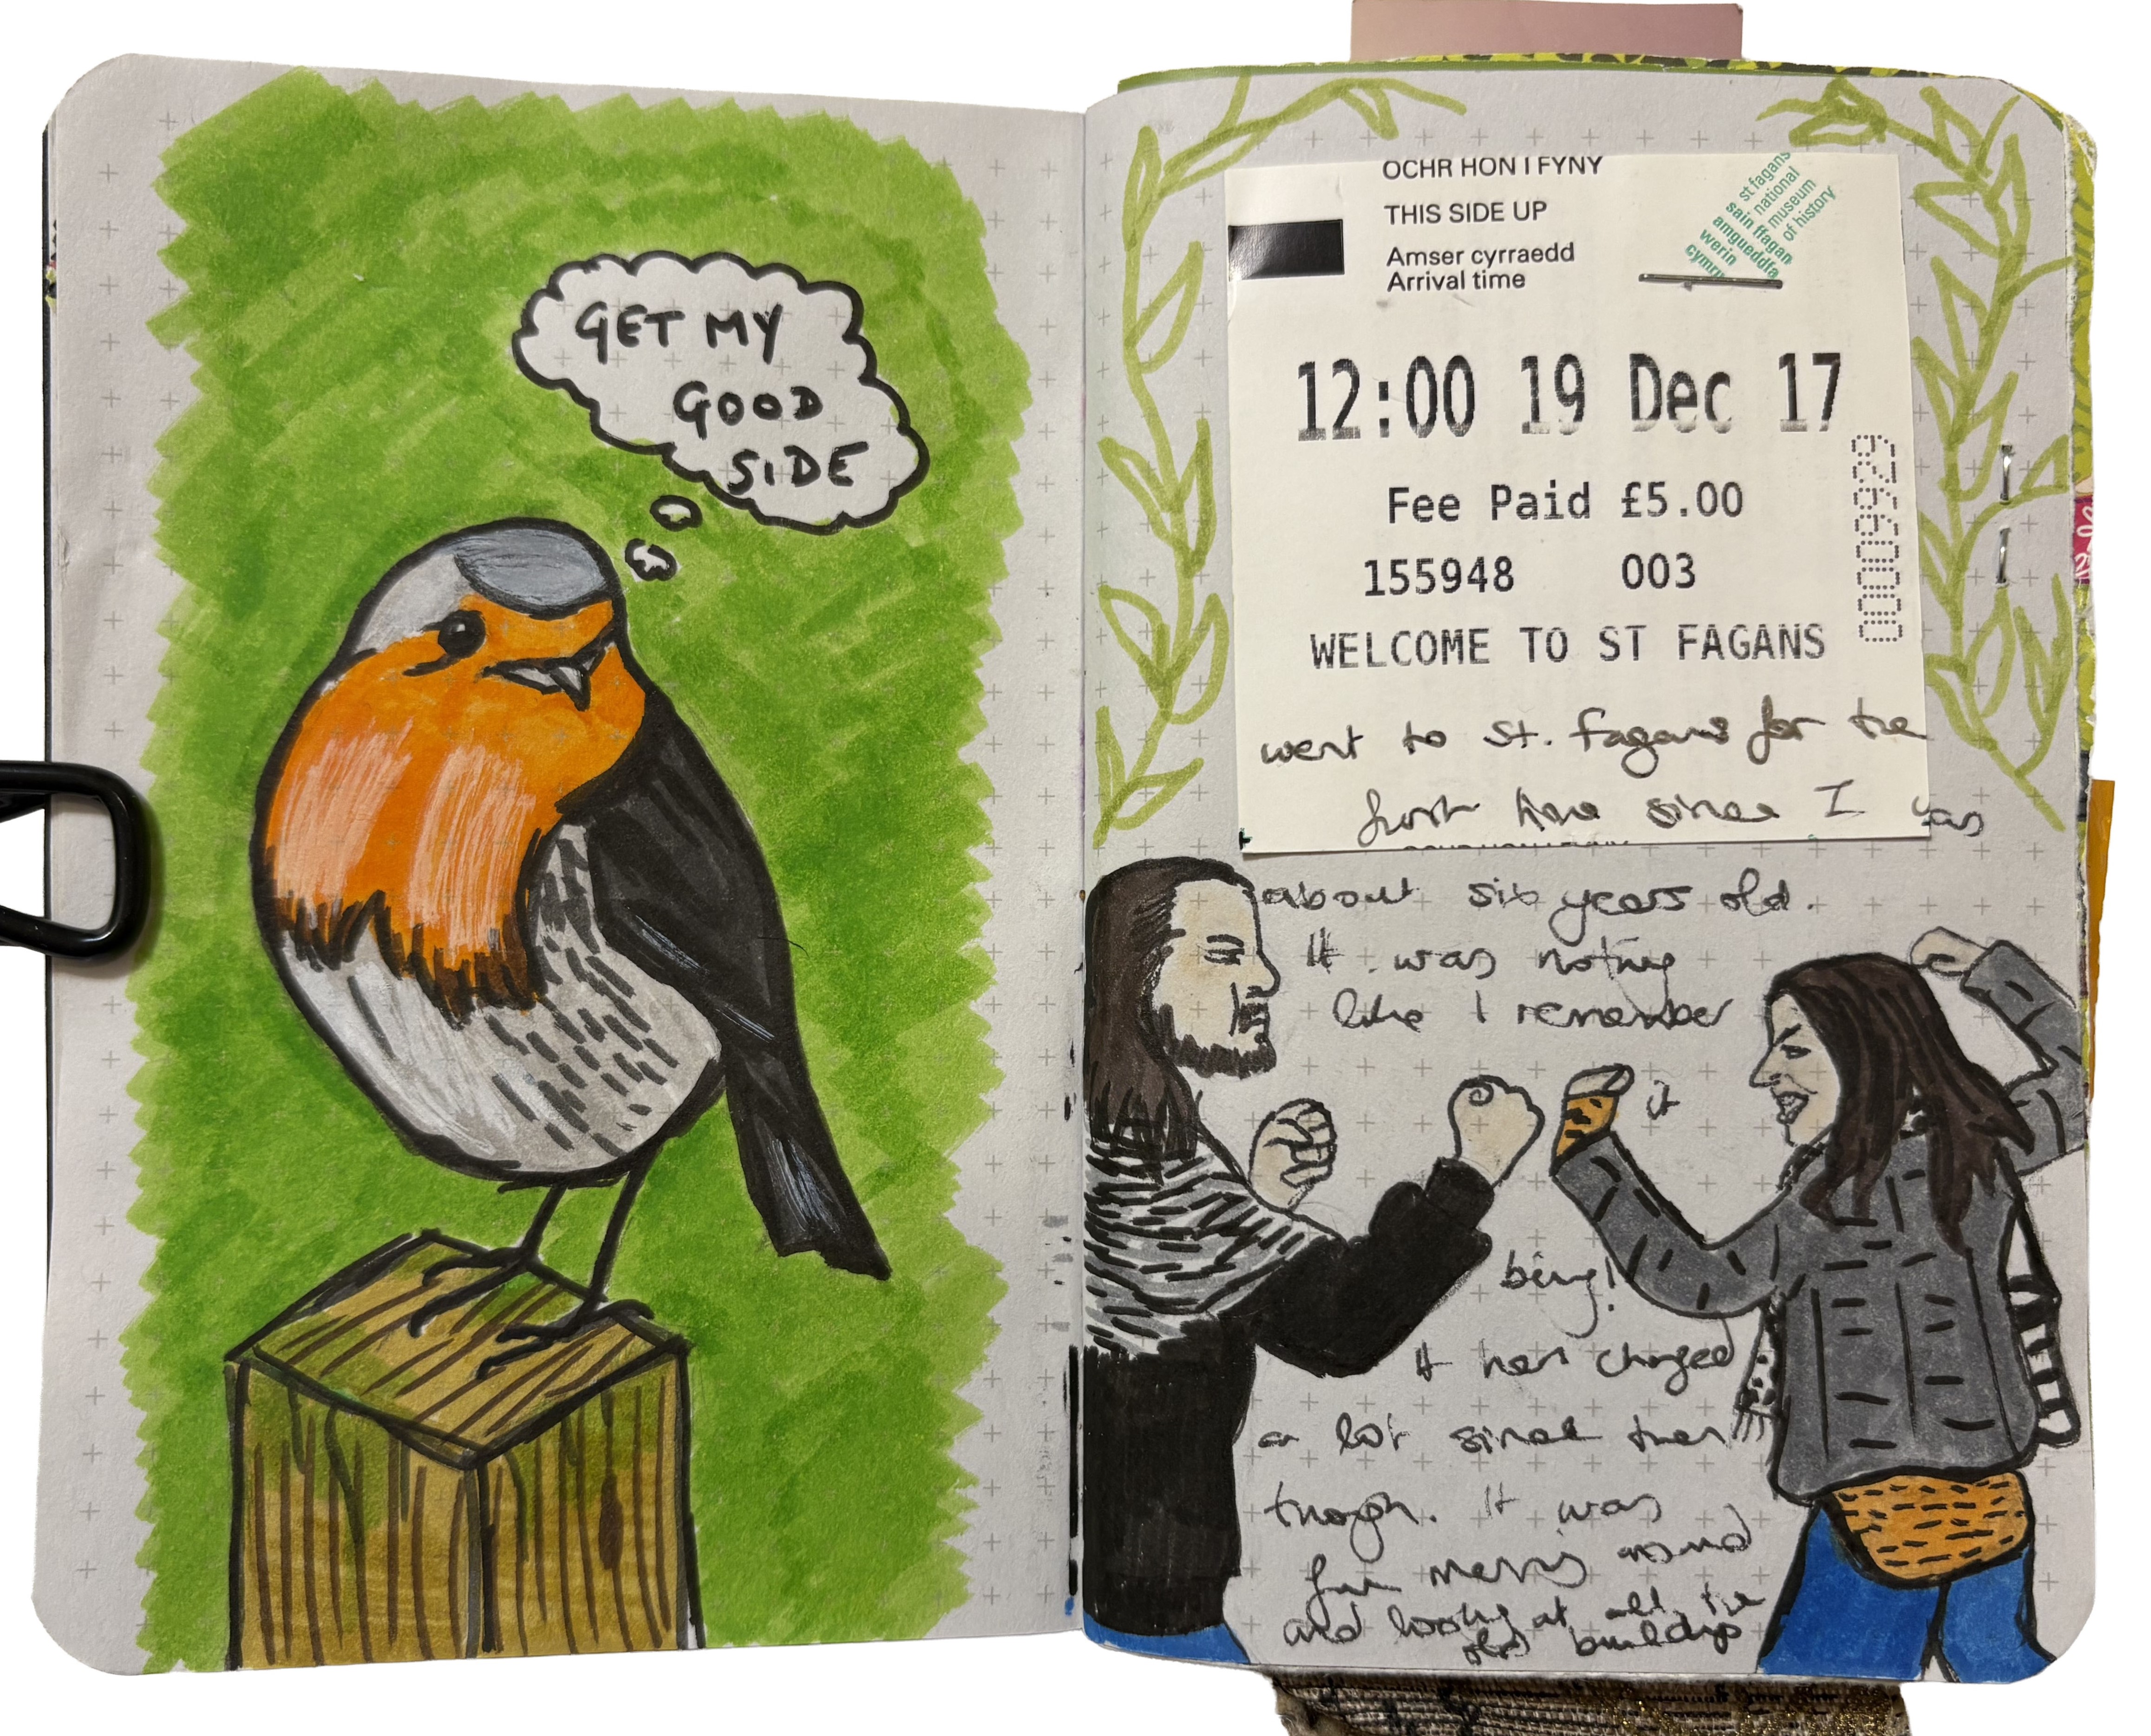 GET MY
GOOD
SIDE
OCHR HON I FYNY
THIS SIDE UP
Amser cyrraedd
Arrival time
st fagans
national
museum
of history
sain ffagan
amgueddfa
werin
cymru
12:00 19 Dec 17
Fee Paid £5.00
155948 003
WELCOME TO ST FAGANS
0009929
went to St. Fagans for the
first time since I was
about six years old.
It was nothing
like I remember
it
being!
It has changed
a lot since then
though. It was
fun messing around
and looking at all the
old buildings